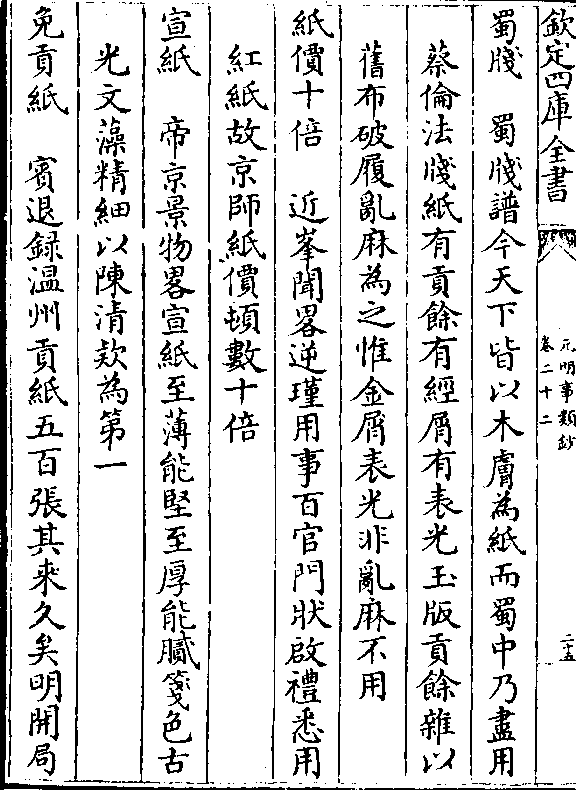 欽定四庫全書
元明事類鈔
卷二十二
二十五
蜀牋　蜀牋譜今天下皆以木膚為紙而蜀中乃盡用
蔡倫法牋紙有貢餘有經屑有表光玉版貢餘雜以
舊布破履亂麻為之惟金屑表光非亂麻不用
紙價十倍　近峯聞畧逆瑾用事百官門狀啟禮悉用
紅紙故京師紙價頓數十倍
宣紙　帝京景物畧宣紙至薄能堅至厚能膩箋色古
光文藻精細以陳清款為第一
免貢紙　賓退録温州貢紙五百張其來久矣明開局